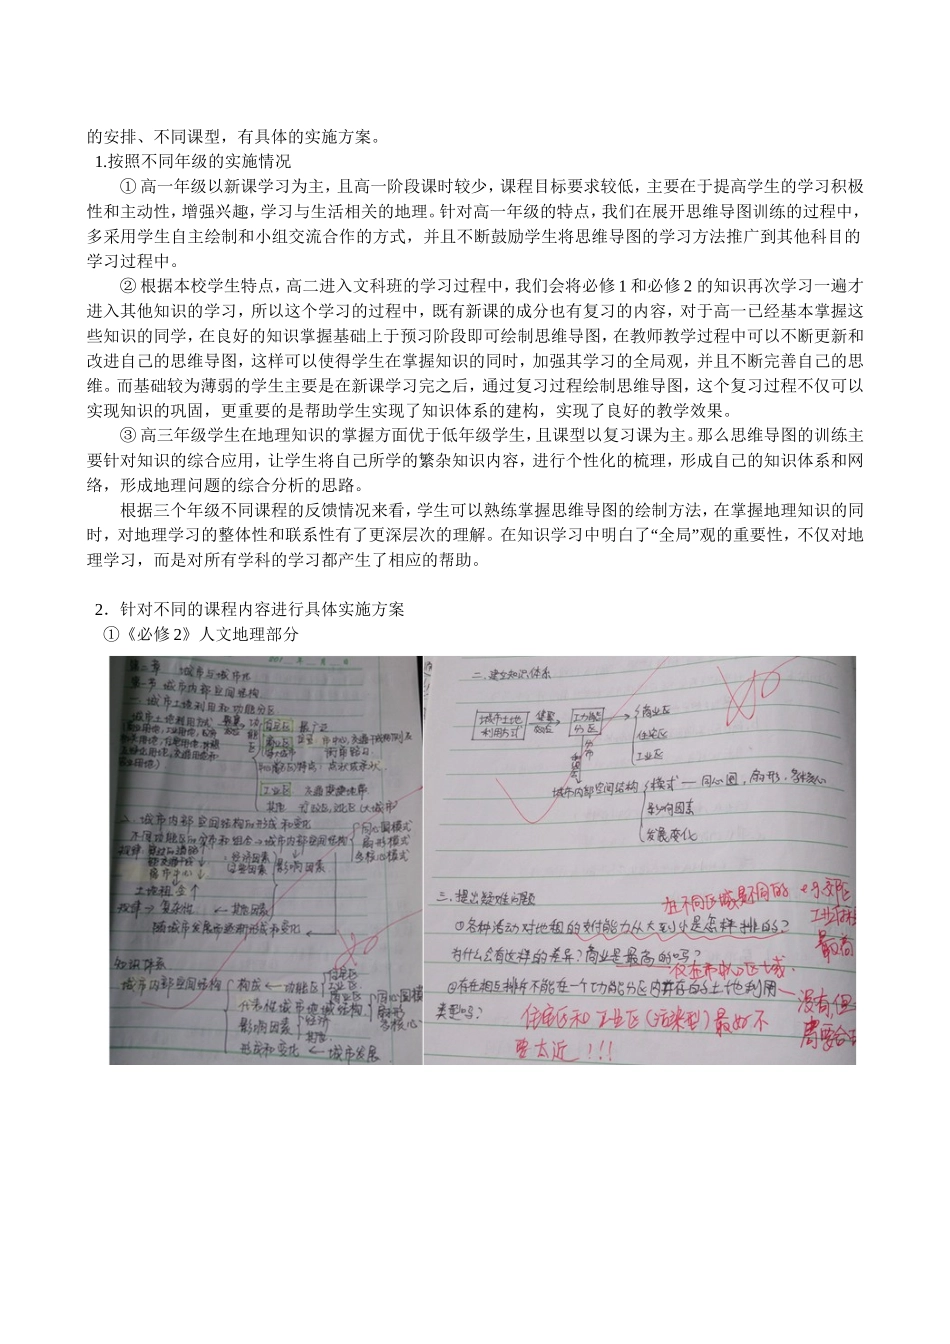 的安排、不同课型，有具体的实施方案。
1.按照不同年级的实施情况
① 高一年级以新课学习为主，且高一阶段课时较少，课程目标要求较低，主要在于提高学生的学习积极
性和主动性，增强兴趣，学习与生活相关的地理。针对高一年级的特点，我们在展开思维导图训练的过程中，
多采用学生自主绘制和小组交流合作的方式，并且不断鼓励学生将思维导图的学习方法推广到其他科目的
学习过程中。
② 根据本校学生特点，高二进入文科班的学习过程中，我们会将必修 1 和必修 2 的知识再次学习一遍才
进入其他知识的学习，所以这个学习的过程中，既有新课的成分也有复习的内容，对于高一已经基本掌握这
些知识的同学，在良好的知识掌握基础上于预习阶段即可绘制思维导图，在教师教学过程中可以不断更新和
改进自己的思维导图，这样可以使得学生在掌握知识的同时，加强其学习的全局观，并且不断完善自己的思
维。而基础较为薄弱的学生主要是在新课学习完之后，通过复习过程绘制思维导图，这个复习过程不仅可以
实现知识的巩固，更重要的是帮助学生实现了知识体系的建构，实现了良好的教学效果。
③ 高三年级学生在地理知识的掌握方面优于低年级学生，且课型以复习课为主。那么思维导图的训练主
要针对知识的综合应用，让学生将自己所学的繁杂知识内容，进行个性化的梳理，形成自己的知识体系和网
络，形成地理问题的综合分析的思路。
根据三个年级不同课程的反馈情况来看，学生可以熟练掌握思维导图的绘制方法，在掌握地理知识的同
时，对地理学习的整体性和联系性有了更深层次的理解。在知识学习中明白了“全局”观的重要性，不仅对地
理学习，而是对所有学科的学习都产生了相应的帮助。
2．针对不同的课程内容进行具体实施方案
①《必修 2》人文地理部分
第二章 城市与城市化
第一节 城市内部空间结构
一、城市土地利用和功能分区
城市土地利用方式
住宅区 最广泛
商业区
工业区
其他
二、城市内部空间结构的形成和变化
同心圆模式
扇形模式
多核心模式
经济因素
影响因素
其他因素
随城市发展而逐渐形成和变化
知识体系
城市内部空间结构
构成 ← 功能区
住宅区
工业区
商业区
影响因素
经济
其他
形成和变化 ← 城市发展
二、建立知识体系
城市土地
利用方式
集聚
效应
功能
分区
商业区
住宅区
工业区
城市内部空间结构
模式 — 同心圆，扇形，多核心
影响因素
发展变化
三、提出疑难问题
在不同区域是不同的
①各种活动对地租的支付能力从大到小是怎样排的？
为什么会有这样的差异？商业是最高的吗？
仅在市中心区域.
②存在相互排斥不能在一个功能分区内并存的土地利用
类型吗？
住宅区和工业区(污染型)最好不
要太近！！！
没有，但
最高